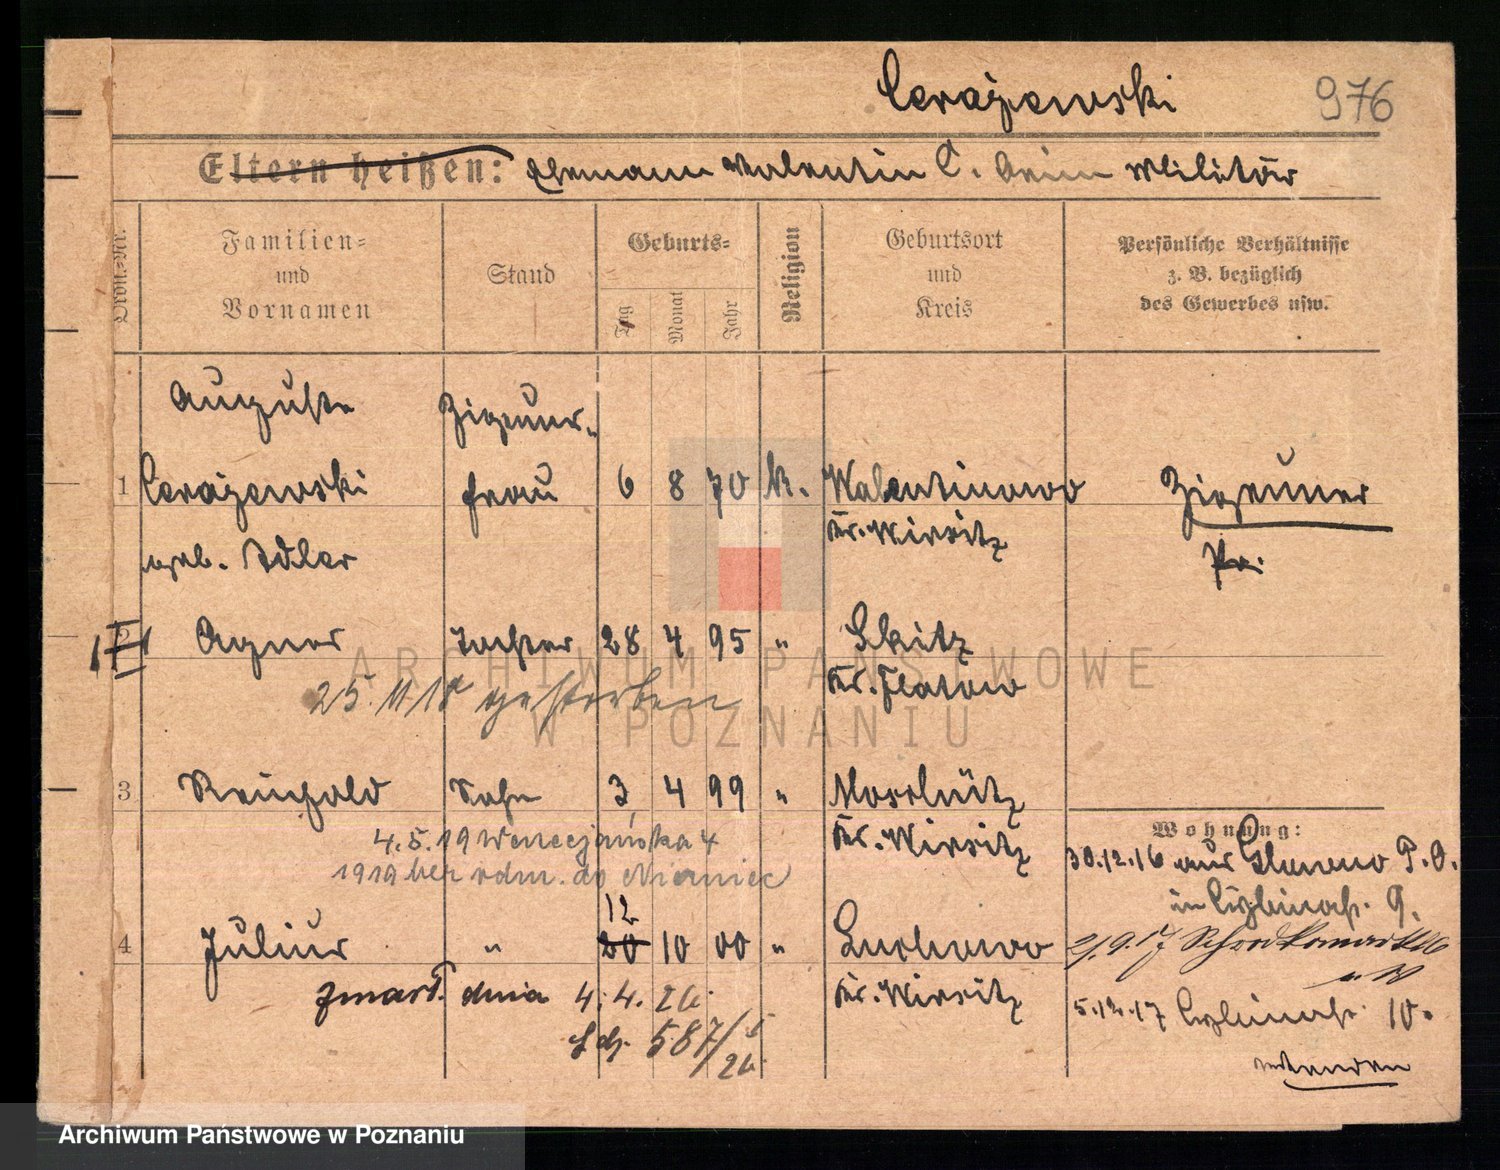 Cerażewski 976
Eltern heißen: Ehemann Valentin C. beim Militär
Ordn.-Nr.
Familien-
und
Vornamen
Stand
Geburts-
Tag
Monat
Jahr
Religion
Geburtsort
und
Kreis
Persönliche Verhältnisse
z. B. bezüglich
des Gewerbes usw.
Auguste Zigeuner-
1 Cerażewski frau 6 8 70 K. Walentinowo Zigeuner
Kr. Wirsitz
geb. Adler
2 Agnes Tochter 28 4 95 " Skitz
Kr. Flatow
25. 11 18 gestorben
3 Reinhold Sohn 3 4 99 " Kr. Wirsitz
4.5.19 Wenecjańska 4
1919 do Niemiec
Wohnung:
30.12.16 aus P. O.
in Cybinastr. 9.
12
4 Julius " 20 10 00 " Kr. Wirsitz
zmarł. dnia 4. 4. 26.
587/
26
5.12.17 Cybinastr. 10.
wenden
ARCHIWUM PAŃSTWOWE
W POZNANIU
Archiwum Państwowe w Poznaniu